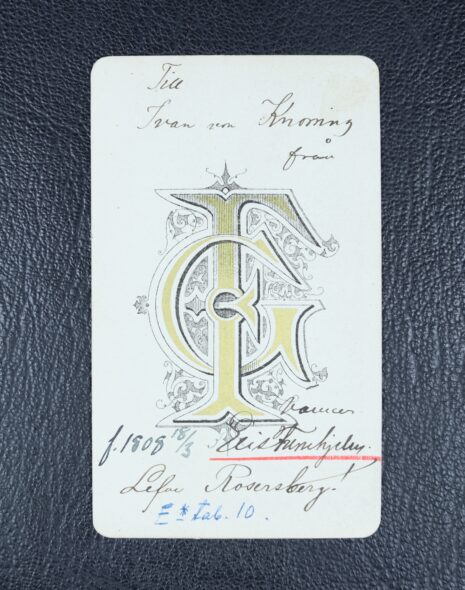 Till
Ivan von Knorring
från
GF
vännen
f. 1808 18/3
Lefve Rosersberg!
E * tab. 10.